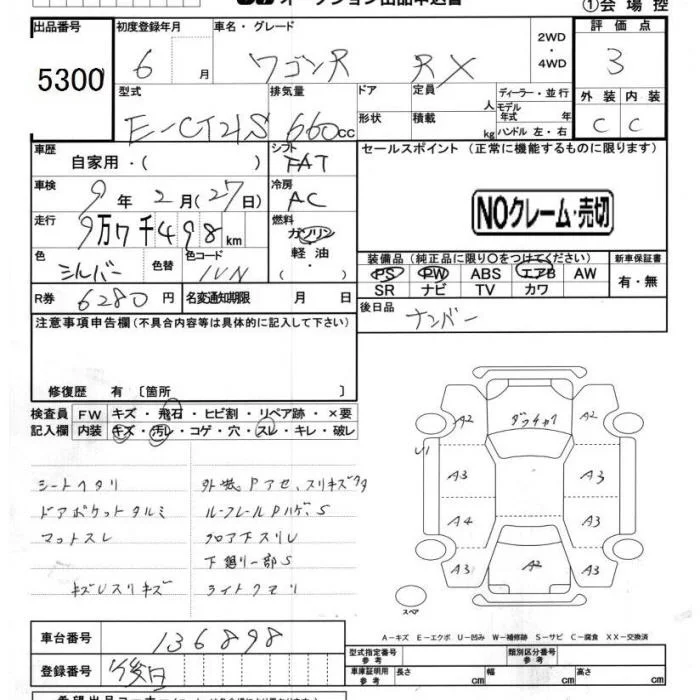 オークション出品申込書
①会場控
出品番号 初度登録年月 車名・グレード 2WD・4WD 評価点
5300 6月 ワゴンR RX 3
型式 排気量 ドア 定員 人 ディーラー・並行 外装 内装
E-CT21S 660cc 形状 積載 kg モデル年式 年 ハンドル 左・右 C C
車歴 自家用・( ) シフト FAT セールスポイント (正常に機能するものに限ります)
車検 9年2月(27日) 冷房 AC
NOクレーム・売切
走行 9万7千498km 燃料 ガソリン 軽油 ・( )
色 シルバー 色替 色コード
装備品 (純正品に限り○をつけてください) 新車保証書
PS PW ABS エアB AW 有・無
SR ナビ TV カワ
R券 6280円 名変通知期限 月 日
後日品 ナンバー
注意事項申告欄 (不具合内容等は具体的に記入して下さい)
修復歴 有 〔箇所 〕
検査員 FW キズ・飛石・ヒビ割・リペア跡・×要
記入欄 内装 キズ・汚レ・コゲ・穴・スレ・キレ・破レ
シートヘタリ
ドアポケットタルミ
マットスレ
キズUスリキズ
フロア下スリU
下廻リ一部S
ライトクマリ
A2 A2
U1
A3 A3
A4 A3
A3 A2 A3
スペア
A-キズ E-エクボ U-凹み W-補修跡 S-サビ C-腐食 XX-交換済
車台番号 136898
型式指定番号 参考 類別区分番号 参考
登録番号 後日
車庫証明用 参考 長さ cm 幅 cm 高さ cm